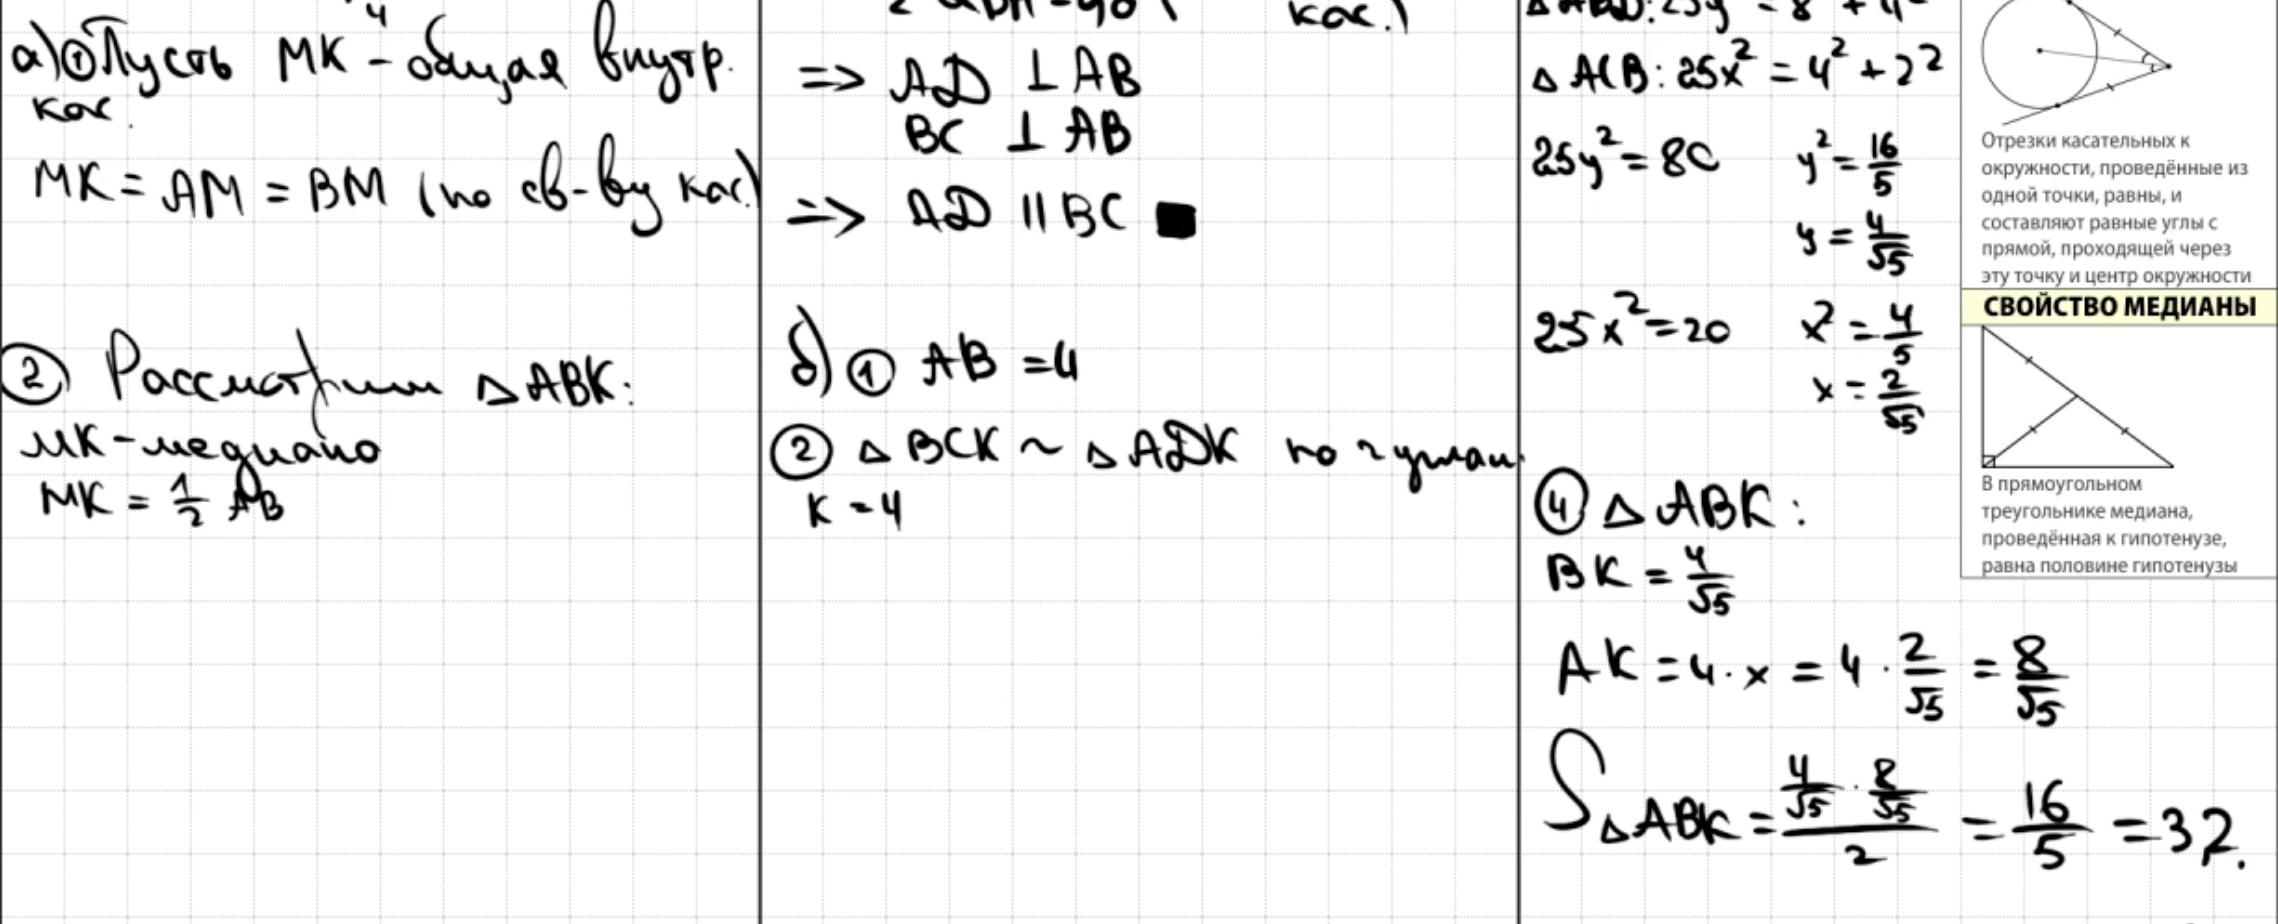 а) ① Пусть МК - общая внутр.
кас.
МК = АМ = ВМ (по св-ву кас.)
② Рассмотрим △ АВК:
МК - медиана
МК = 1/2 АВ
кас.)
=> AD ⊥ AB
BC ⊥ AB
=> AD || BC ■
б) ① AB = 4
② △ BCK ~ △ ADK по 2 углам
K = 4
△ ACB: 25x² = 4² + 2²
25y² = 80 y² = 16/5
y = 4/√5
25x² = 20 x² = 4/5
x = 2/√5
④ △ ABK:
BK = 4/√5
AK = 4 · x = 4 · 2/√5 = 8/√5
S △ ABK = (4/√5 · 8/√5)/2 = 16/5 = 32.
Отрезки касательных к
окружности, проведённые из
одной точки, равны, и
составляют равные углы с
прямой, проходящей через
эту точку и центр окружности
СВОЙСТВО МЕДИАНЫ
В прямоугольном
треугольнике медиана,
проведённая к гипотенузе,
равна половине гипотенузы